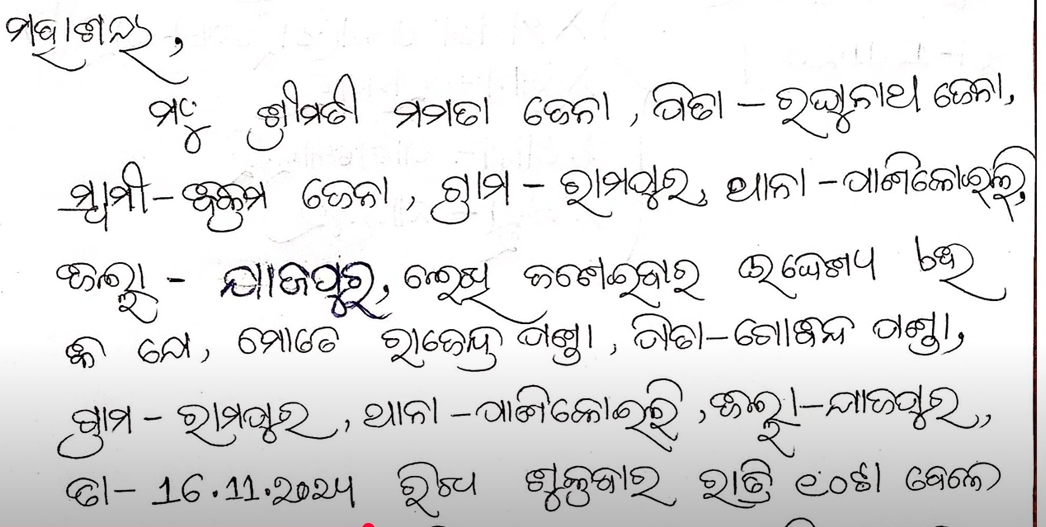 ମହାଶୟ,
ମୁଁ ଶ୍ରୀମତୀ ମମତା ଜେନା, ପିତା - ରଘୁନାଥ ଜେନା,
ସ୍ୱାମୀ - ବିକ୍ରମ ଜେନା, ଗ୍ରାମ - ରାମପୁର, ଥାନା - ପାଣିକୋଇଲି,
ଜିଲ୍ଲା - ଯାଜପୁର, ଲେଖି ଜଣେଇବାର ଉଦ୍ଦେଶ୍ୟ ହେଉଛି
କି ଯେ, ମୋତେ ରାଜେନ୍ଦ୍ର ପଣ୍ଡା, ପିତା - ଗୋବିନ୍ଦ ପଣ୍ଡା,
ଗ୍ରାମ - ରାମପୁର, ଥାନା - ପାଣିକୋଇଲି, ଜିଲ୍ଲା - ଯାଜପୁର,
ତା - 16.11.2024 ଶୁକ୍ରବାର ରାତ୍ରି ୧୦ଟା ବେଳେ